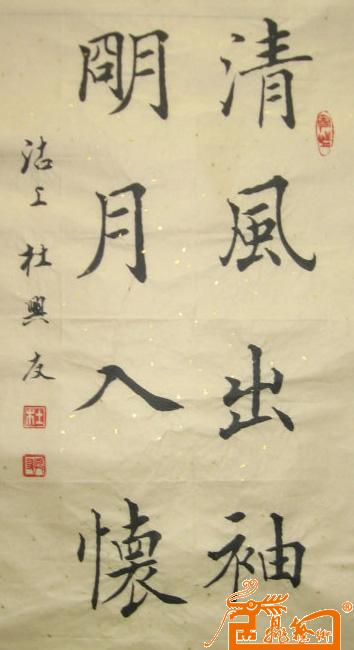 清風出袖
朙月入懷
沽上杜興友